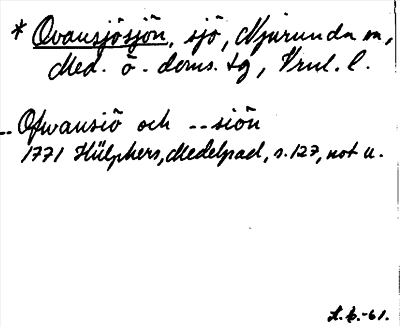 * Ovansjösjön, sjö, Njurunda sn,
Med. ö. doms. tg, Vrml. l.
-- Ofwansiö och --siön
1771 Hülphers, Medelpad, s. 127, not u.
L.B.-61.